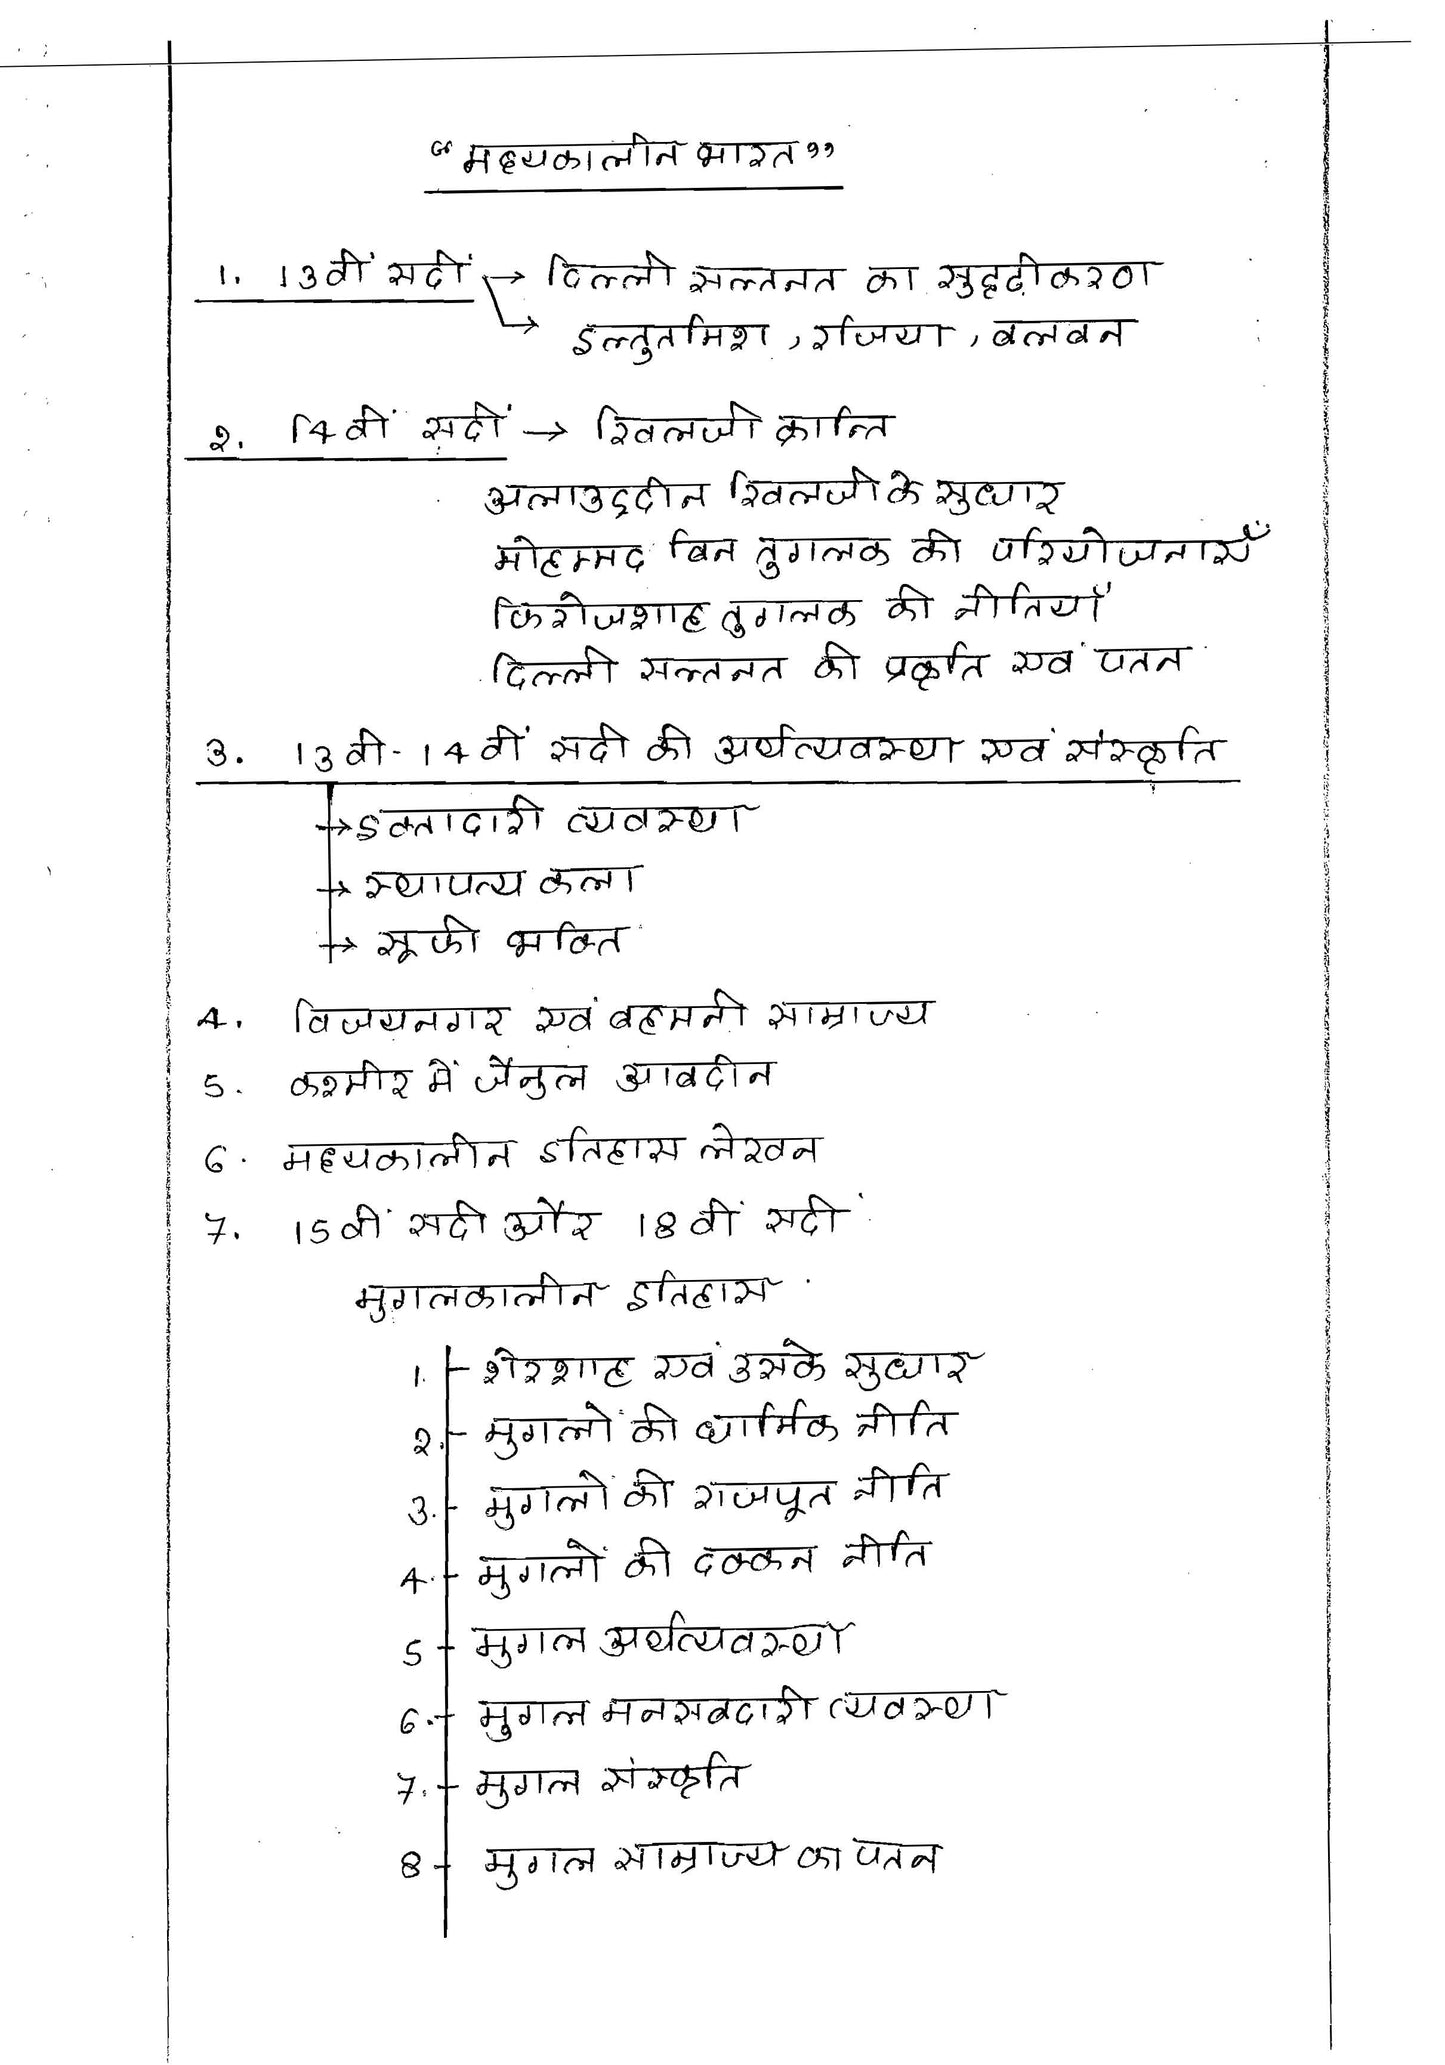 “मध्यकालीन भारत”
1. 13वीं सदीं → दिल्ली सल्तनत का सुदृढ़ीकरण
→ इल्तुतमिश, रजिया, बलबन
2. 14वीं सदीं → खिलजी क्रान्ति
अलाउद्दीन खिलजी के सुधार
मोहम्मद बिन तुगलक की परियोजनाएँ
फिरोजशाह तुगलक की नीतियाँ
दिल्ली सल्तनत की प्रकृति एवं पतन
3. 13वी-14वीं सदी की अर्थव्यवस्था एवं संस्कृति
→ इक्तादारी व्यवस्था
→ स्थापत्य कला
→ सूफी भक्ति
4. विजयनगर एवं बहमनी साम्राज्य
5. कश्मीर में जैनुल आबदीन
6. मध्यकालीन इतिहास लेखन
7. 15वीं सदी और 18वीं सदीं
मुगलकालीन इतिहास
1. शेरशाह एवं उसके सुधार
2. मुगलों की धार्मिक नीति
3. मुगलों की राजपूत नीति
4. मुगलों की दक्कन नीति
5 मुगल अर्थव्यवस्था
6. मुगल मनसबदारी व्यवस्था
7. मुगल संस्कृति
8 मुगल साम्राज्य का पतन